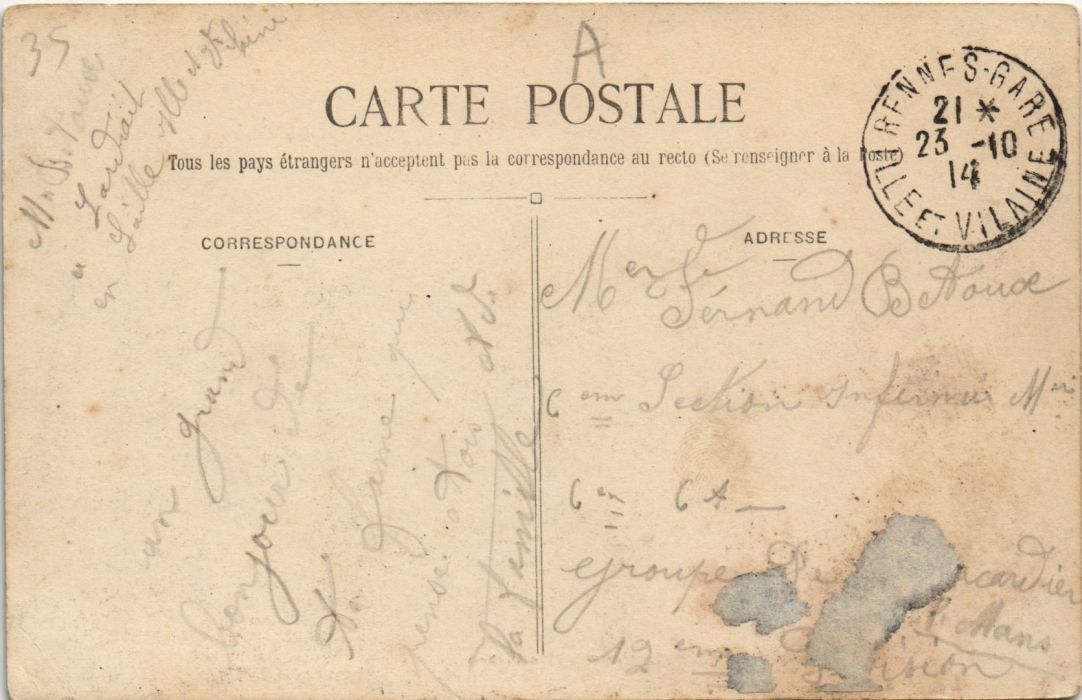 35
A
Mr Betoux
a Lardrait
en Laillé Ille et Vilaine
CARTE POSTALE
Tous les pays étrangers n'acceptent pas la correspondance au recto (Se renseigner à la Poste
RENNES-GARE
21 *
23 -10
14
ILLE ET VILAINE
CORRESPONDANCE
un grand
bonjour de
Ta famme que
pense a tois et
la famille
ADRESSE
Fernand Betoux
6 em Section infirmié Mre
6 em
Groupe De
12 em Division